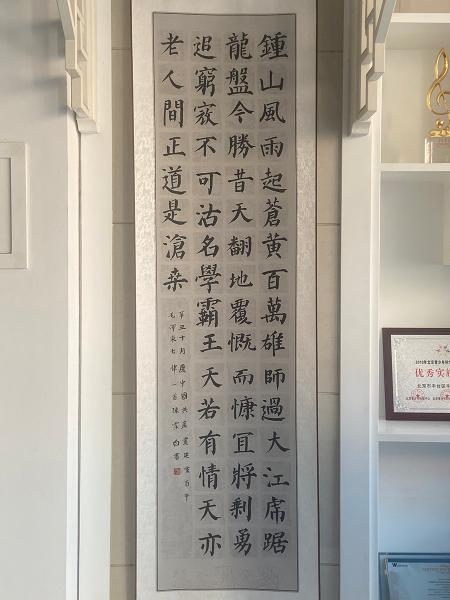 鍾山風雨起蒼黃百萬雄師過大江虎踞
龍盤今勝昔天翻地覆慨而慷宜將剩勇
追窮寇不可沽名學霸王天若有情天亦
老人間正道是滄桒
辛丑十月慶中國共產黨建黨百年
毛澤東七律一首
优秀实